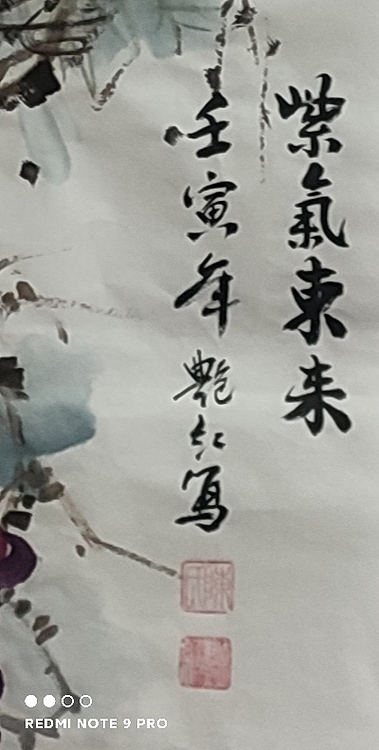 紫氣東来
壬寅年 艷红寫
REDMI NOTE 9 PRO